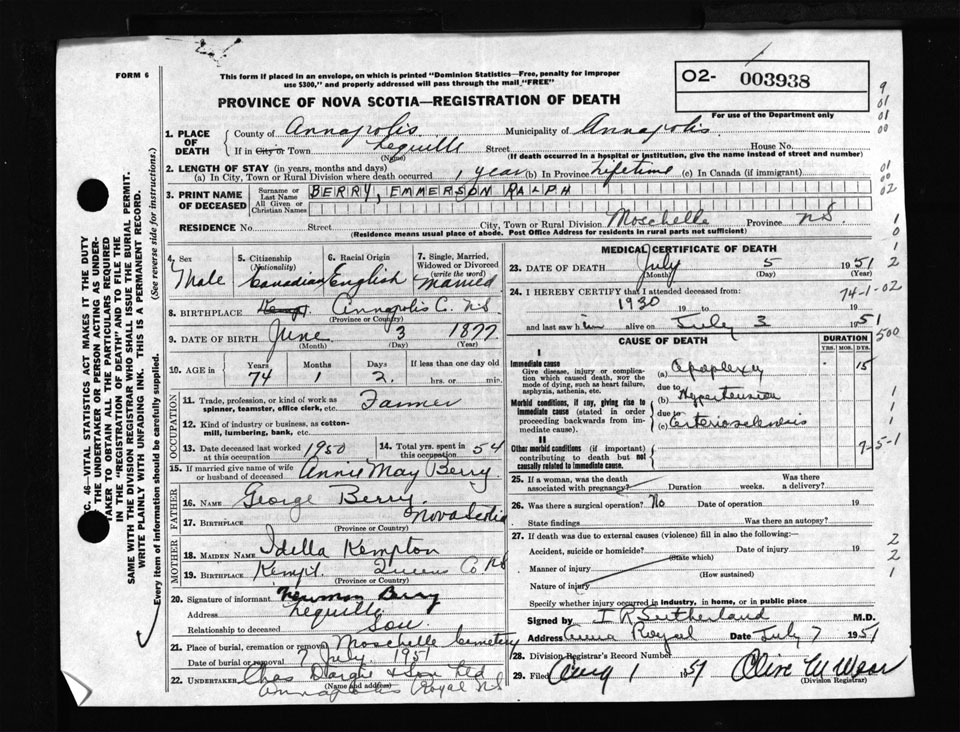 FORM 6
This form if placed in an envelope, on which is printed "Dominion Statistics—Free, penalty for improper
use $300," and properly addressed will pass through the mail "FREE"
PROVINCE OF NOVA SCOTIA—REGISTRATION OF DEATH
O2- 003938
For use of the Department only
1. PLACE OF DEATH
County of Annapolis Municipality of Annapolis
If in City or Town Lequille Street House No.
(Name) (If death occurred in a hospital or institution, give the name instead of street and number)
2. LENGTH OF STAY (in years, months and days)
(a) In City, Town or Rural Division where death occurred 1 year (b) In Province Lifetime (c) In Canada (if immigrant)
3. PRINT NAME OF DECEASED
Surname or Last Name BERRY, EMMERSON RALPH
All Given or Christian Names
RESIDENCE No. Street City, Town or Rural Division Moschelle Province N.S.
(Residence means usual place of abode. Post Office Address for residents in rural parts not sufficient)
4. Sex Male
5. Citizenship (Nationality) Canadian
6. Racial Origin English
7. Single, Married, Widowed or Divorced (write the word) Married
8. BIRTHPLACE Kempt. Annapolis C. N.S.
(Province or Country)
9. DATE OF BIRTH June 3 1877
(Month) (Day) (Year)
10. AGE in Years Months Days If less than one day old
74 1 2. hrs. or min.
OCCUPATION
11. Trade, profession, or kind of work as
spinner, teamster, office clerk, etc. Farmer
12. Kind of industry or business, as cotton-
mill, lumbering, bank, etc.
13. Date deceased last worked at this occupation 1950
14. Total yrs. spent in this occupation 54
15. If married give name of wife
or husband of deceased Annie May Berry
FATHER
16. NAME George Berry
17. BIRTHPLACE Nova Scotia
(Province or Country)
MOTHER
18. MAIDEN NAME Idella Kempton
19. BIRTHPLACE Kempt. Queens Co. N.S
(Province or Country)
20. Signature of informant Newman Berry
Address Lequille
Relationship to deceased Son
21. Place of burial, cremation or removal Moschelle Cemetery
Date of burial or removal 7 July 1951
22. UNDERTAKER Chas Dargie & Son Ltd
(Name and address) Annapolis Royal NS
MEDICAL CERTIFICATE OF DEATH
23. DATE OF DEATH July 5 1951
(Month) (Day) (Year)
24. I HEREBY CERTIFY that I attended deceased from:
1930 19 to 19
and last saw him alive on July 3 1951
CAUSE OF DEATH
DURATION
YRS. MOS. DYS.
I
Immediate cause
Give disease, injury or complica-
tion which caused death, nor the
mode of dying, such as heart failure,
asphyxia, asthenia, etc.
(a) Apoplexy 15
due to
(b) Hypertension
Morbid conditions, if any, giving rise to
immediate cause (stated in order
proceeding backwards from im-
mediate cause).
due to
(c) Arteriosclerosis
II
Other morbid conditions (if important)
contributing to death but not
causally related to immediate cause.
25. If a woman, was the death
associated with pregnancy? Duration weeks. Was there a delivery?
26. Was there a surgical operation? No Date of operation 19
State findings Was there an autopsy?
27. If death was due to external causes (violence) fill in also the following:—
Accident, suicide or homicide? Date of injury 19
(State which)
Manner of injury
(How sustained)
Nature of injury
Specify whether injury occurred in industry, in home, or in public place
Signed by I R Sutherland M.D.
Address Anna Royal Date July 7 1951
28. Division Registrar's Record Number
29. Filed Aug 1 1951 Olive M Wear
(Division Registrar)
9
01
01
00
01
00
02
1
0
1
2
74-1-02
500
1
1
1
7-5-1
2
2
1
SEC. 46—VITAL STATISTICS ACT MAKES IT THE DUTY
OF THE UNDERTAKER OR PERSON ACTING AS UNDER-
TAKER TO OBTAIN ALL THE PARTICULARS REQUIRED
IN THE "REGISTRATION OF DEATH" AND TO FILE THE
SAME WITH THE DIVISION REGISTRAR WHO SHALL ISSUE THE BURIAL PERMIT.
WRITE PLAINLY WITH UNFADING INK. THIS IS A PERMANENT RECORD.
Every item of information should be carefully supplied. (See reverse side for instructions.)